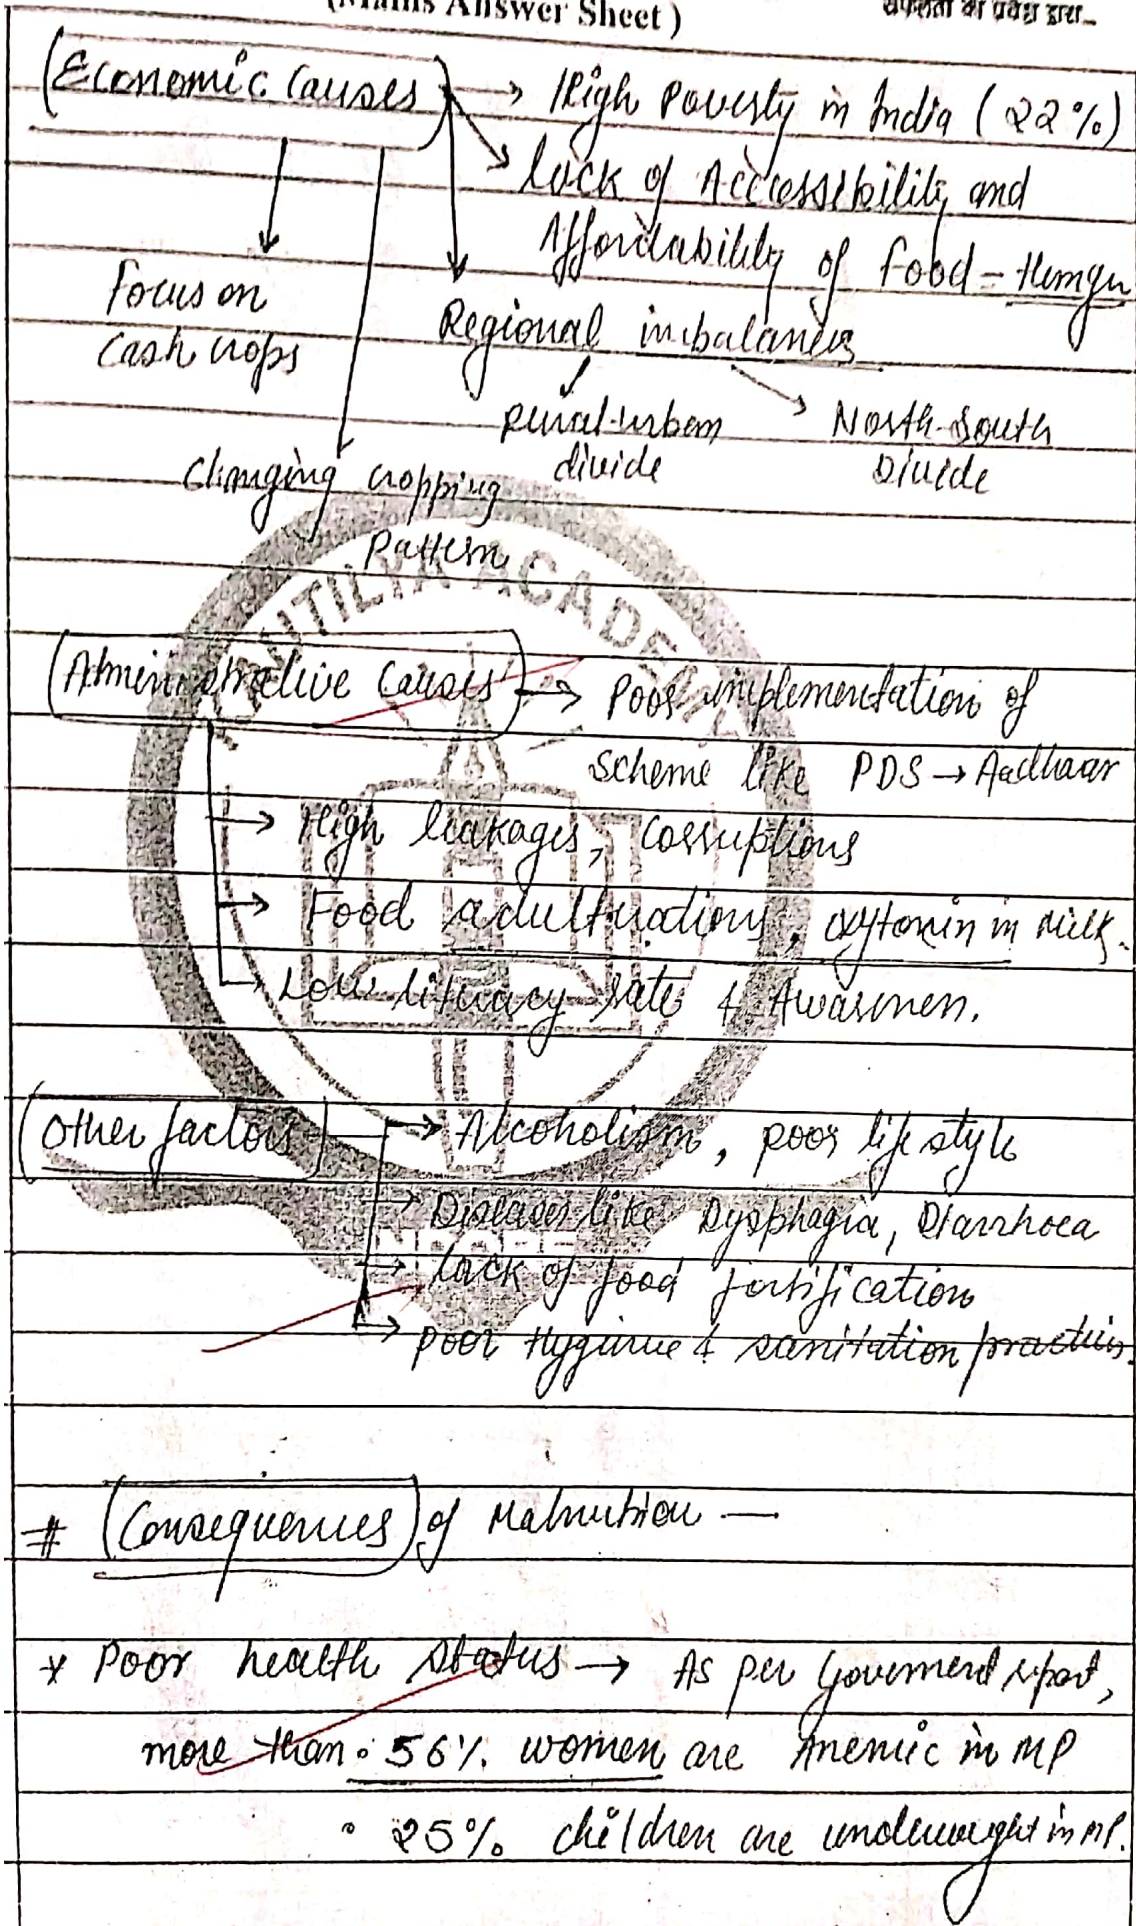 (Mains Answer Sheet)
सफलता का प्रवेश द्वार..
Economic Causes → High Poverty in India (22%)
→ lack of Accessibility and
Affordability of food - Hunger
Focus on
cash crops
Regional imbalances
Rural-urban
divide
North-South
Divide
Changing cropping
Pattern
KAUTILYA ACADEMY
Administrative Causes → Poor implementation of
scheme like PDS → Aadhaar
→ High leakages, Corruptions
→ Food adulterations, oxytoxin in Milk.
→ Low literacy rate & Awareness.
Other factors → Alcoholism, poor life style
→ Diseases like Dysphagia, Diarrhoea
→ lack of food fortification
→ poor Hygiene & sanitation practices.
# Consequences of Malnutrition —
* Poor health status → As per Government report,
more than • 56% women are Anemic in MP
• 25% children are underweight in MP.